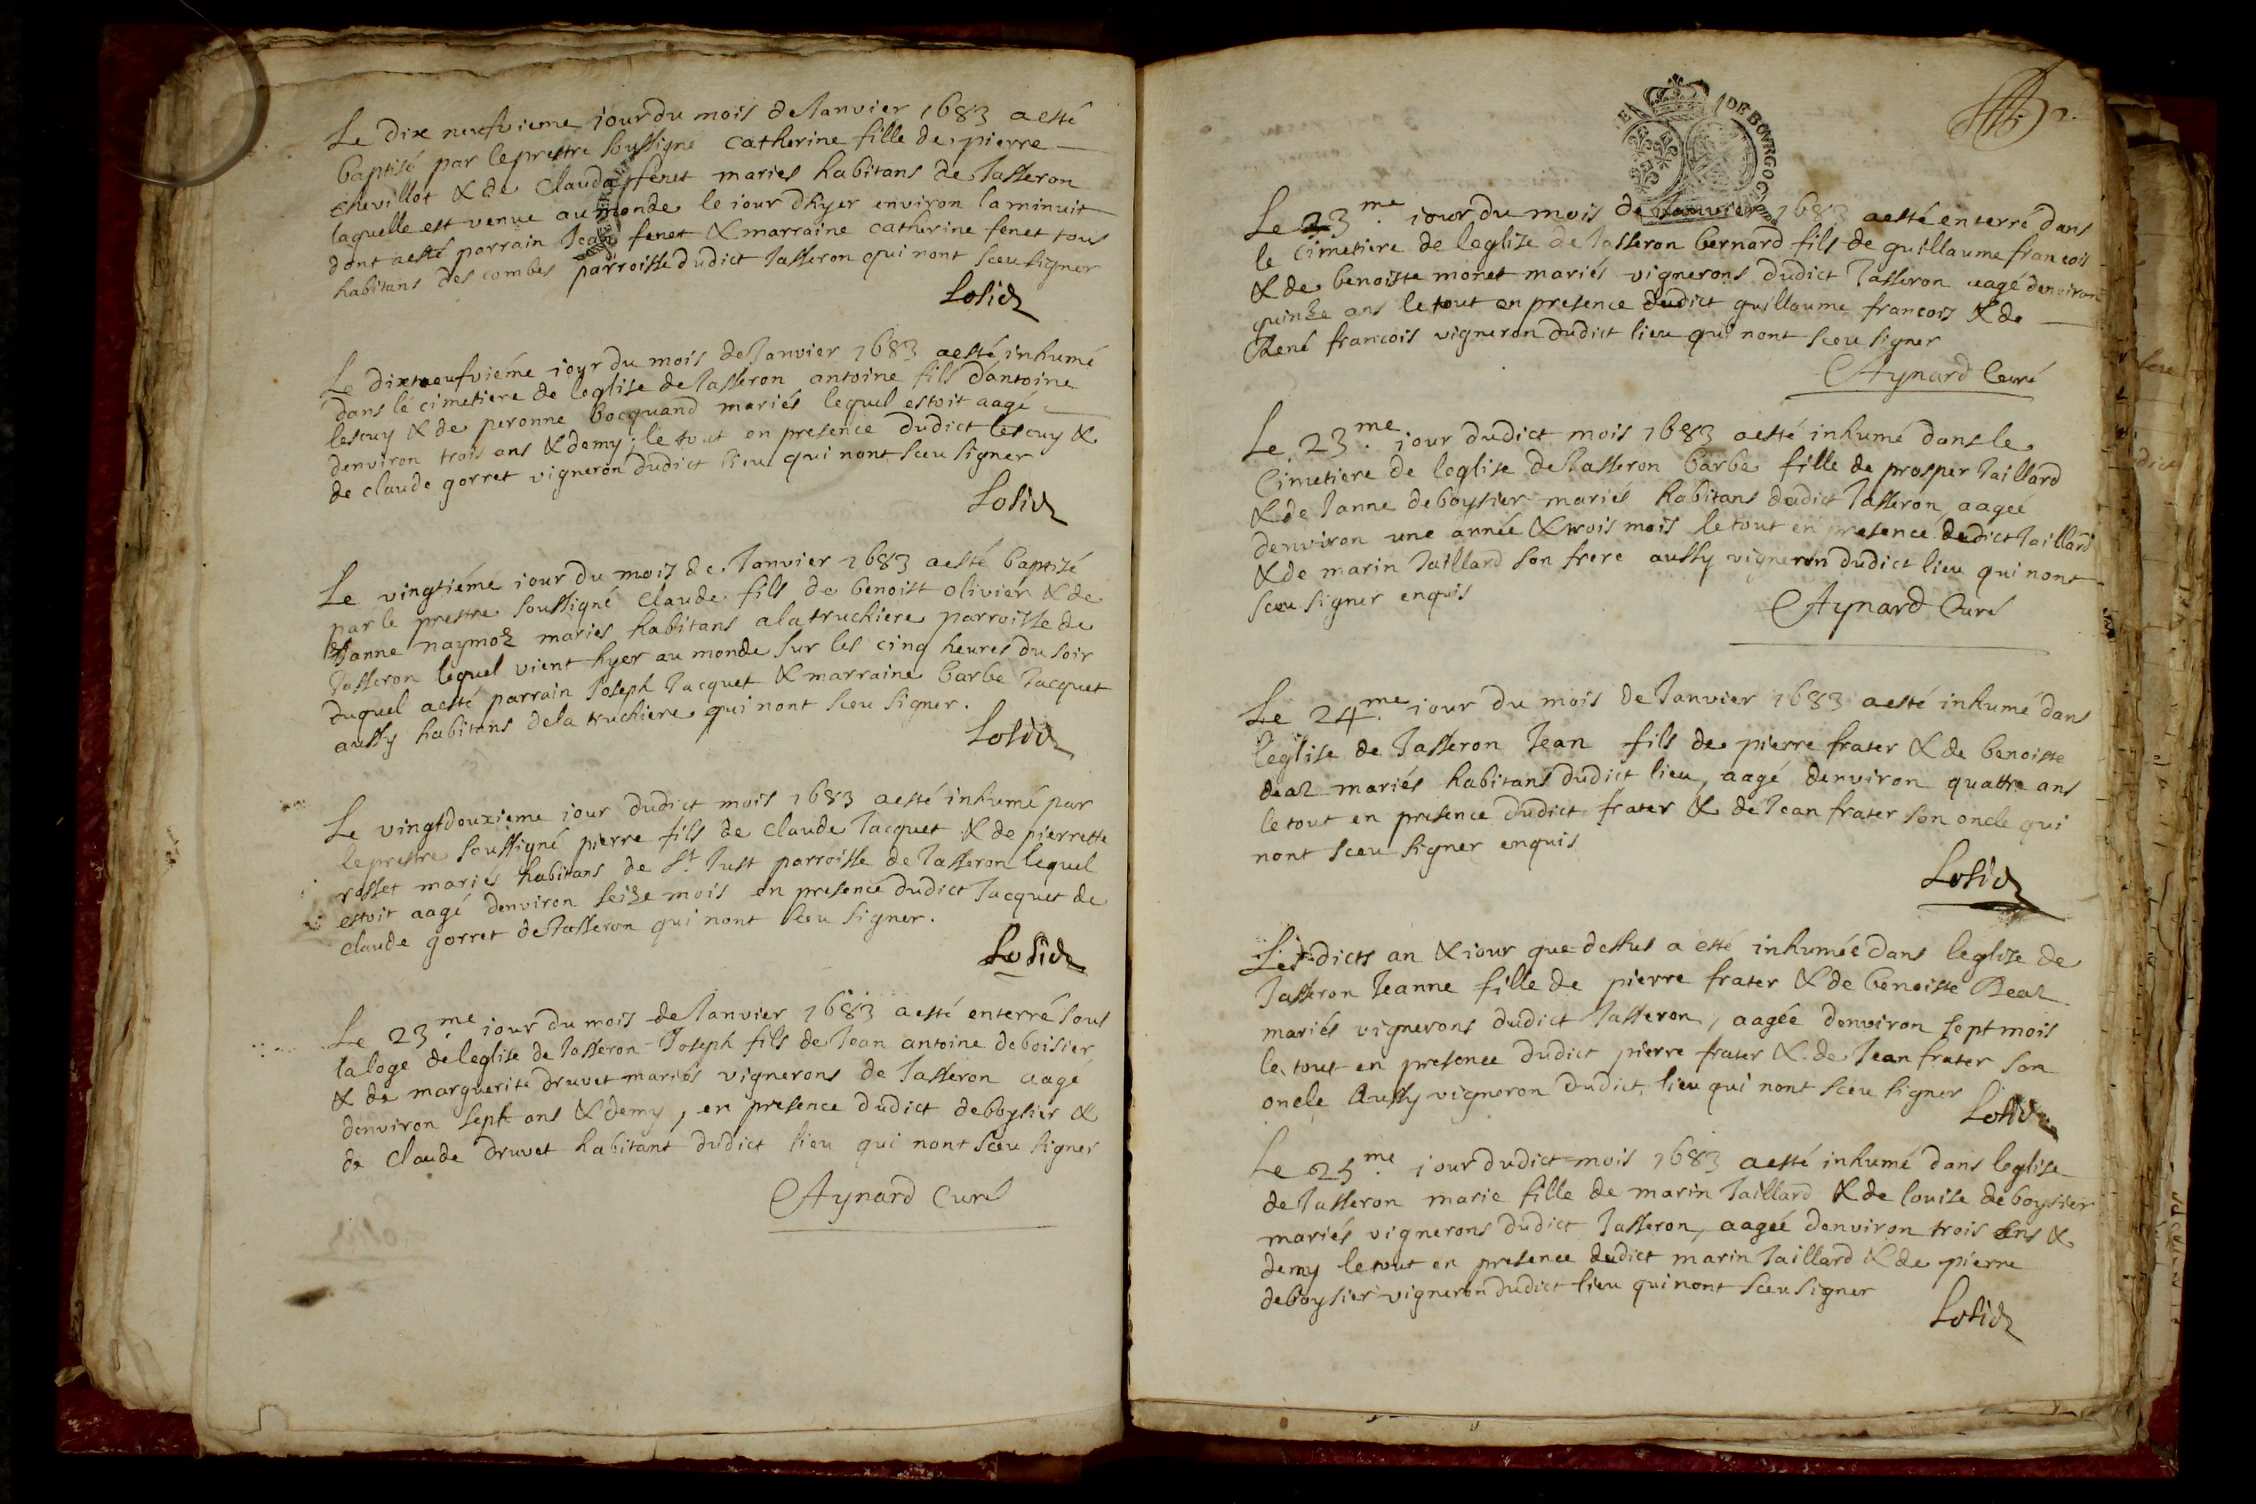 Le dix neufvieme iour du mois de Ianvier 1683 a esté
baptisé par le prestre soussigné catherine fille de pierre
chevillot & de Claude fenet mariés habitans de Iasseron
laquelle est venue au monde le iour dhyer environ la minuit
dont a esté parrain Iean fenet & marraine catherine fenet tous
habitans des combes parroisse dudict Iasseron qui nont sceu signer
Losier
Le dixneufviéme iour du mois de Ianvier 1683 a esté inhumé
dans le cimetiere de leglise de Iasseron antoine fils dantoine
lescuy & de peronne bocquand mariés lequel estoit aagé
denviron trois ans & demy ; le tout en presence dudict lescuy &
de claude gorret vigneron dudict lieu qui nont sceu signer
Losier
Le vingtiéme iour du mois de Ianvier 1683 a esté baptizé
par le prestre soussigné Claude fils de benoist olivier & de
Ianne naymoz mariés habitans a la truchiere parroisse de
Iasseron lequel vient hyer au monde sur les cinq heures du soir
duquel a esté parrain Ioseph Iacquet & marraine barbe Iacquet
aussy habitans de la truchiere qui nont sceu signer.
Losier
Le vingtdouxieme iour dudict mois 1683 a esté inhumé par
le prestre soussigné pierre fils de claude Iacquet & de pierrette
rosset mariés habitans de St Iust parroisse de Iasseron lequel
estoit aagé denviron seize mois en presence dudict Iacquet de
claude gorret de Iasseron qui nont sceu signer.
Losier
Le 23me iour du mois de Ianvier 1683 a esté enterré sous
la loge de leglise de Iasseron Ioseph fils de Iean antoine deboisier
& de marguerite druvet mariés vignerons de Iasseron aagé
denviron sept ans & demy, en presence dudict deboysier &
de claude druvet habitant dudict lieu qui nont sceu signer
Aynard Curé
DE BOURGOGNE
2.
Le 23me iour du mois de Ianvier 1683 a esté enterré dans
le cimetiere de leglise de Iasseron bernard fils de guillaume francois
& de benoiste monet mariés vignerons dudict Iasseron aagé denviron
quinze ans le tout en presence dudict guillaume francois & de
René francois vigneron dudict lieu qui nont sceu signer
Aynard Curé
Le 23me iour dudict mois 1683 a esté inhumé dans le
Cimetiere de leglise de Iasseron barbe fille de prosper Iaillard
& de Ianne deboysier mariés habitans dudict Iasseron, aageé
denviron une année & trois mois le tout en presence dudict Iaillard
& de marin Iaillard son frere aussy vigneron dudict lieu qui nont
sceu signer enquis
Aynard Curé
Le 24me iour du mois de Ianvier 1683 a esté inhumé dans
leglise de Iasseron Iean fils de pierre frater & de benoiste
deaz mariés habitans dudict lieu, aagé denviron quattre ans
le tout en presence dudict frater & de Iean frater son oncle qui
nont sceu signer enquis
Losier
Lesdicts an & iour que dessus a esté inhumée dans leglize de
Iasseron Ieanne fille de pierre frater & de benoiste Deaz
mariés vignerons dudict Iasseron, aagée denviron sept mois
le tout en presence dudict pierre frater & de Iean frater son
oncle Aussy vigneron dudict lieu qui nont sceu signer
Losier
Le 25me iour dudict mois 1683 a esté inhumé dans leglise
de Iasseron marie fille de marin Iaillard & de louise deboysier
mariés vignerons dudict Iasseron, aageé denviron trois ans &
demy le tout en presence dudict marin Iaillard & de pierre
deboysier vigneron dudict lieu qui nont sceu signer
Losier